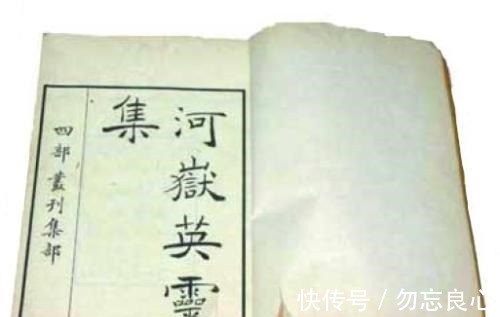 河嶽英靈
集
四部叢刊集部
快传号/勿忘良心